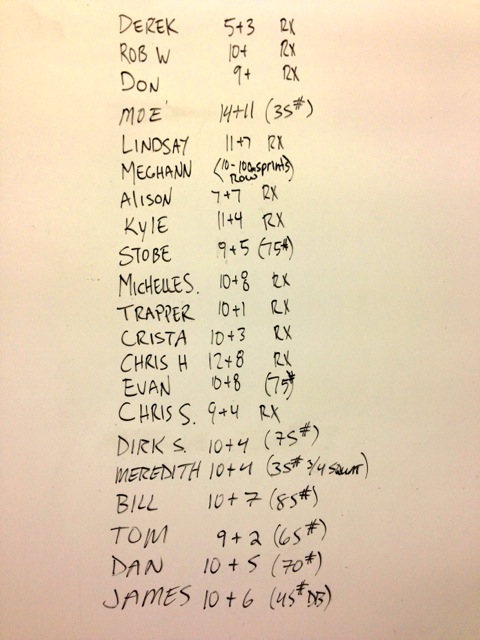 DEREK 5+3 RX
ROB W 10+ RX
DON 9+ RX
MOE 14+11 (35#)
LINDSAY 11+7 RX
MEGHANN (10-100m sprints ROW)
ALISON 7+7 RX
KYLE 11+4 RX
STOBE 9+5 (75#)
MICHELLE S. 10+8 RX
TRAPPER 10+1 RX
CRISTA 10+3 RX
CHRIS H 12+8 RX
EVAN 10+8 (75#
CHRIS S. 9+4 RX
DIRK S. 10+4 (75#)
MEREDITH 10+4 (35# 3/4 SQUAT)
BILL 10+7 (85#)
TOM 9+2 (65#)
DAN 10+5 (70#)
JAMES 10+6 (45# DB)